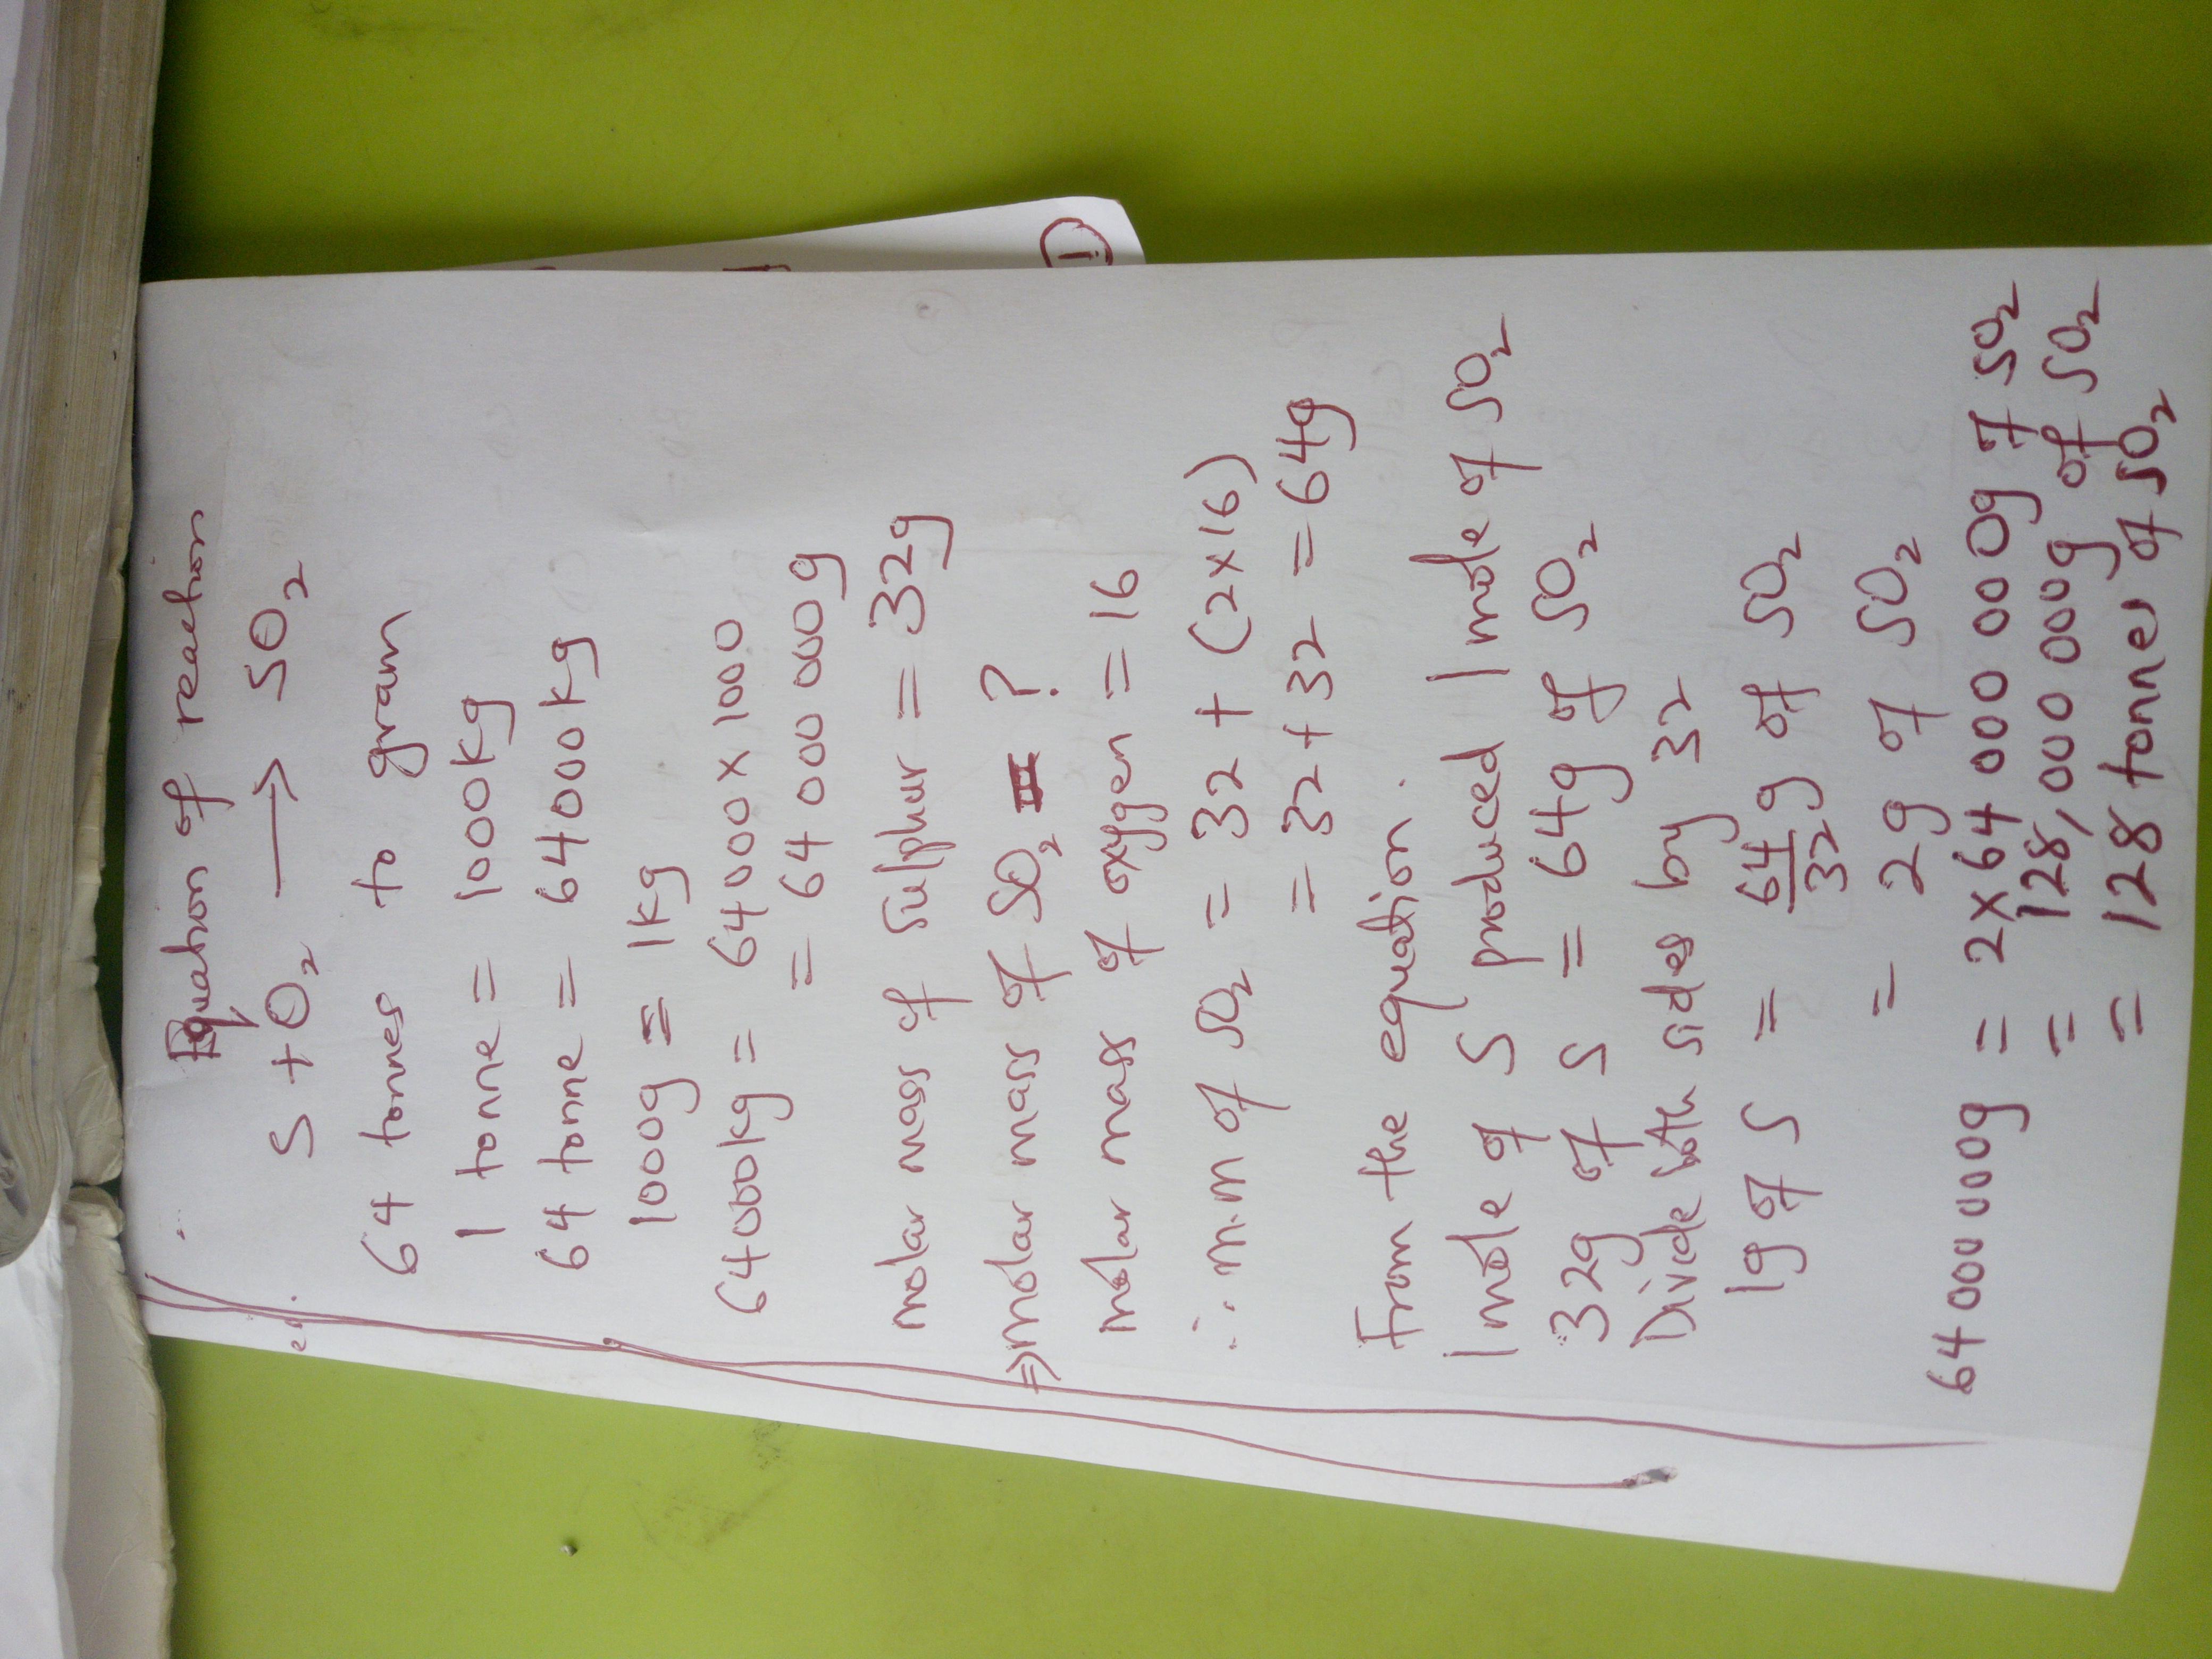 Equation of reaction
S + O₂ → SO₂
64 tonnes to gram
1 tonne = 1000kg
64 tonne = 64000kg
1000g = 1kg
64000kg = 64000×1000
= 64 000 000g
molar mass of sulphur = 32g
⇒ molar mass of SO₂ ?
molar mass of oxygen = 16
∴ m.m of SO₂ = 32 + (2×16)
= 32+32 = 64g
From the equation.
1 mole of S produced 1 mole of SO₂
32g of S = 64g of SO₂
Divide both sides by 32
1g of S = 64/32 g of SO₂
= 2g of SO₂
64 000 000g = 2×64 000 000g of SO₂
= 128,000 000g of SO₂
= 128 tonnes of SO₂